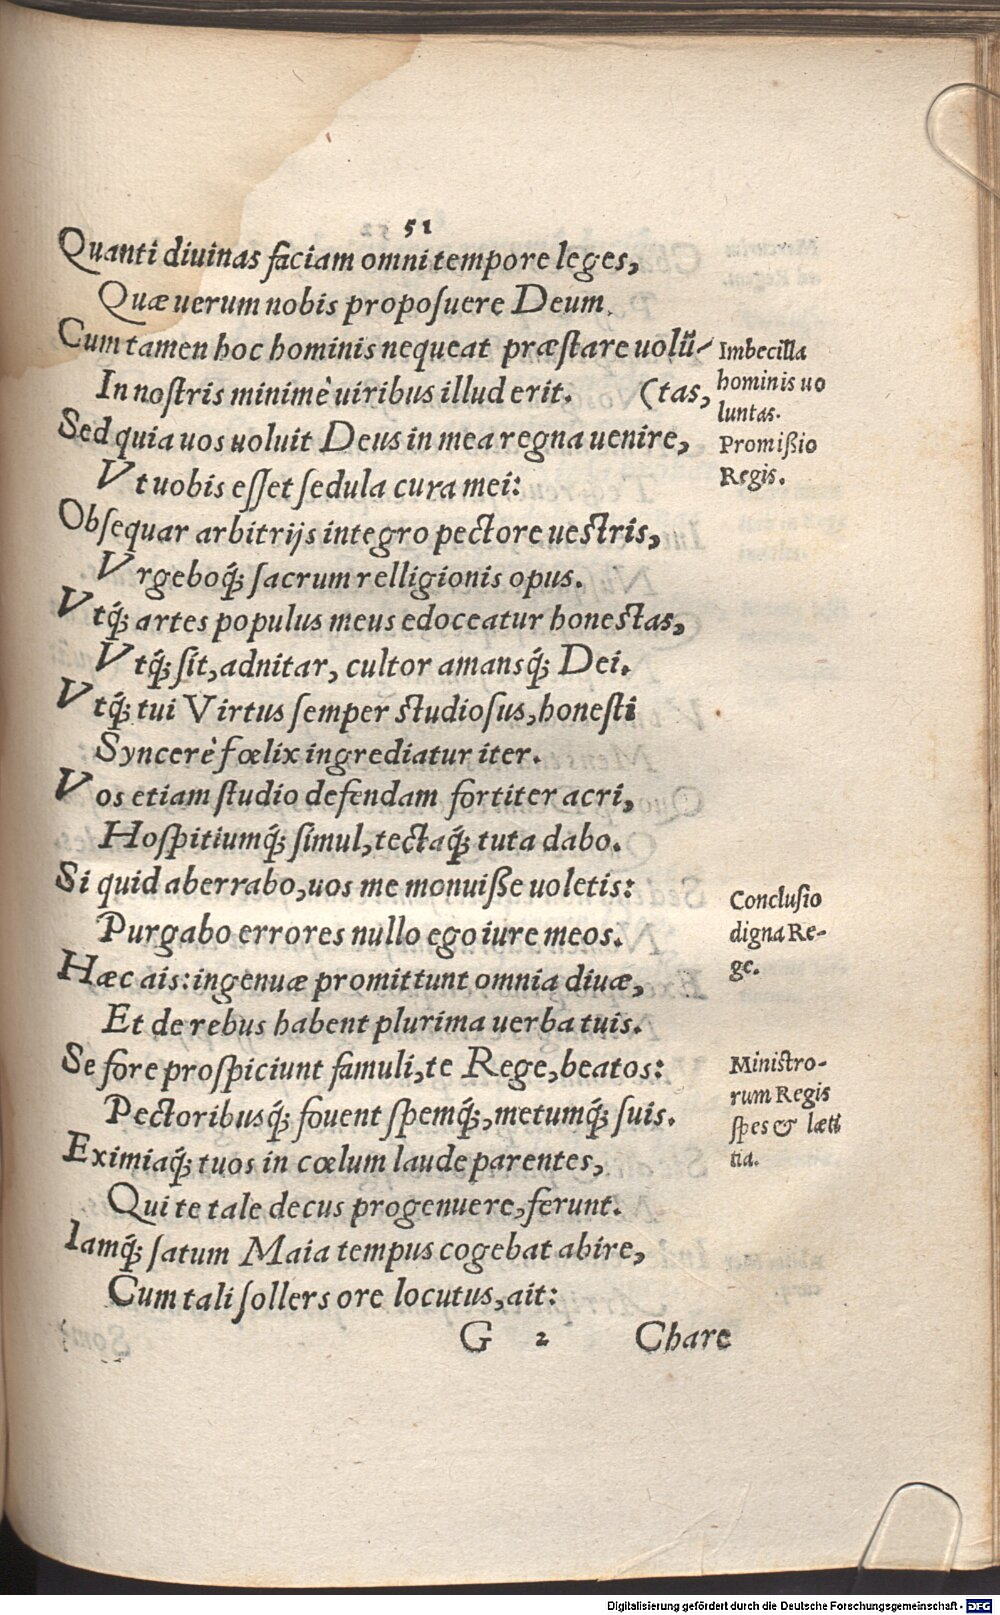 51
Quanti diuinas faciam omni tempore leges,
Quæ uerum nobis proposuere Deum.
Cum tamen hoc hominis nequeat præstare uolũ-
In nostris minimè uiribus illud erit. (tas,
Imbecilla
hominis uo
luntas.
Sed quia uos uoluit Deus in mea regna uenire,
Promißio
Regis.
Vt uobis esset sedula cura mei:
Obsequar arbitrijs integro pectore uestris,
Vrgeboq́; sacrum relligionis opus.
Vtq́; artes populus meus edoceatur honestas,
Vtq́; sit, adnitar, cultor amansq́; Dei.
Vtq́; tui Virtus semper studiosus, honesti
Syncerè fœlix ingrediatur iter.
Vos etiam studio defendam fortiter acri,
Hospitiumq́; simul, tectaq́; tuta dabo.
Si quid aberrabo, uos me monuiße uoletis:
Purgabo errores nullo ego iure meos.
Conclusio
digna Re-
ge.
Hæc ais: ingenuæ promittunt omnia diuæ,
Et de rebus habent plurima uerba tuis.
Se fore prospiciunt famuli, te Rege, beatos:
Pectoribusq́; fouent spemq́;, metumq́; suis.
Ministro-
rum Regis
spes & læti
tia.
Eximiaq́; tuos in cœlum laude parentes,
Qui te tale decus progenuere, ferunt.
Iamq́; satum Maia tempus cogebat abire,
Cum tali sollers ore locutus, ait:
G 2 Chare
Digitalisierung gefördert durch die Deutsche Forschungsgemeinschaft - DFG